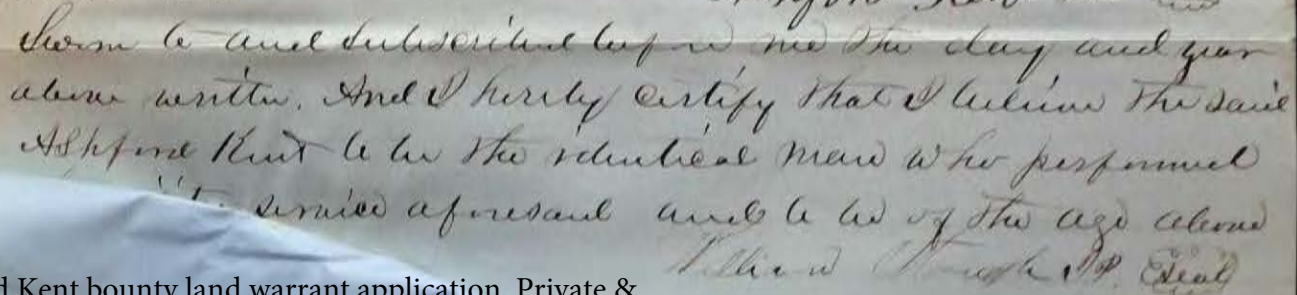 Sworn to and subscribed before me the day and year
above written. And I hereby certify that I believe the said
Ashford Kent to be the identical man who performed
service aforesaid and to be of the age above
William J.P. Seal
d Kent bounty land warrant application, Private &